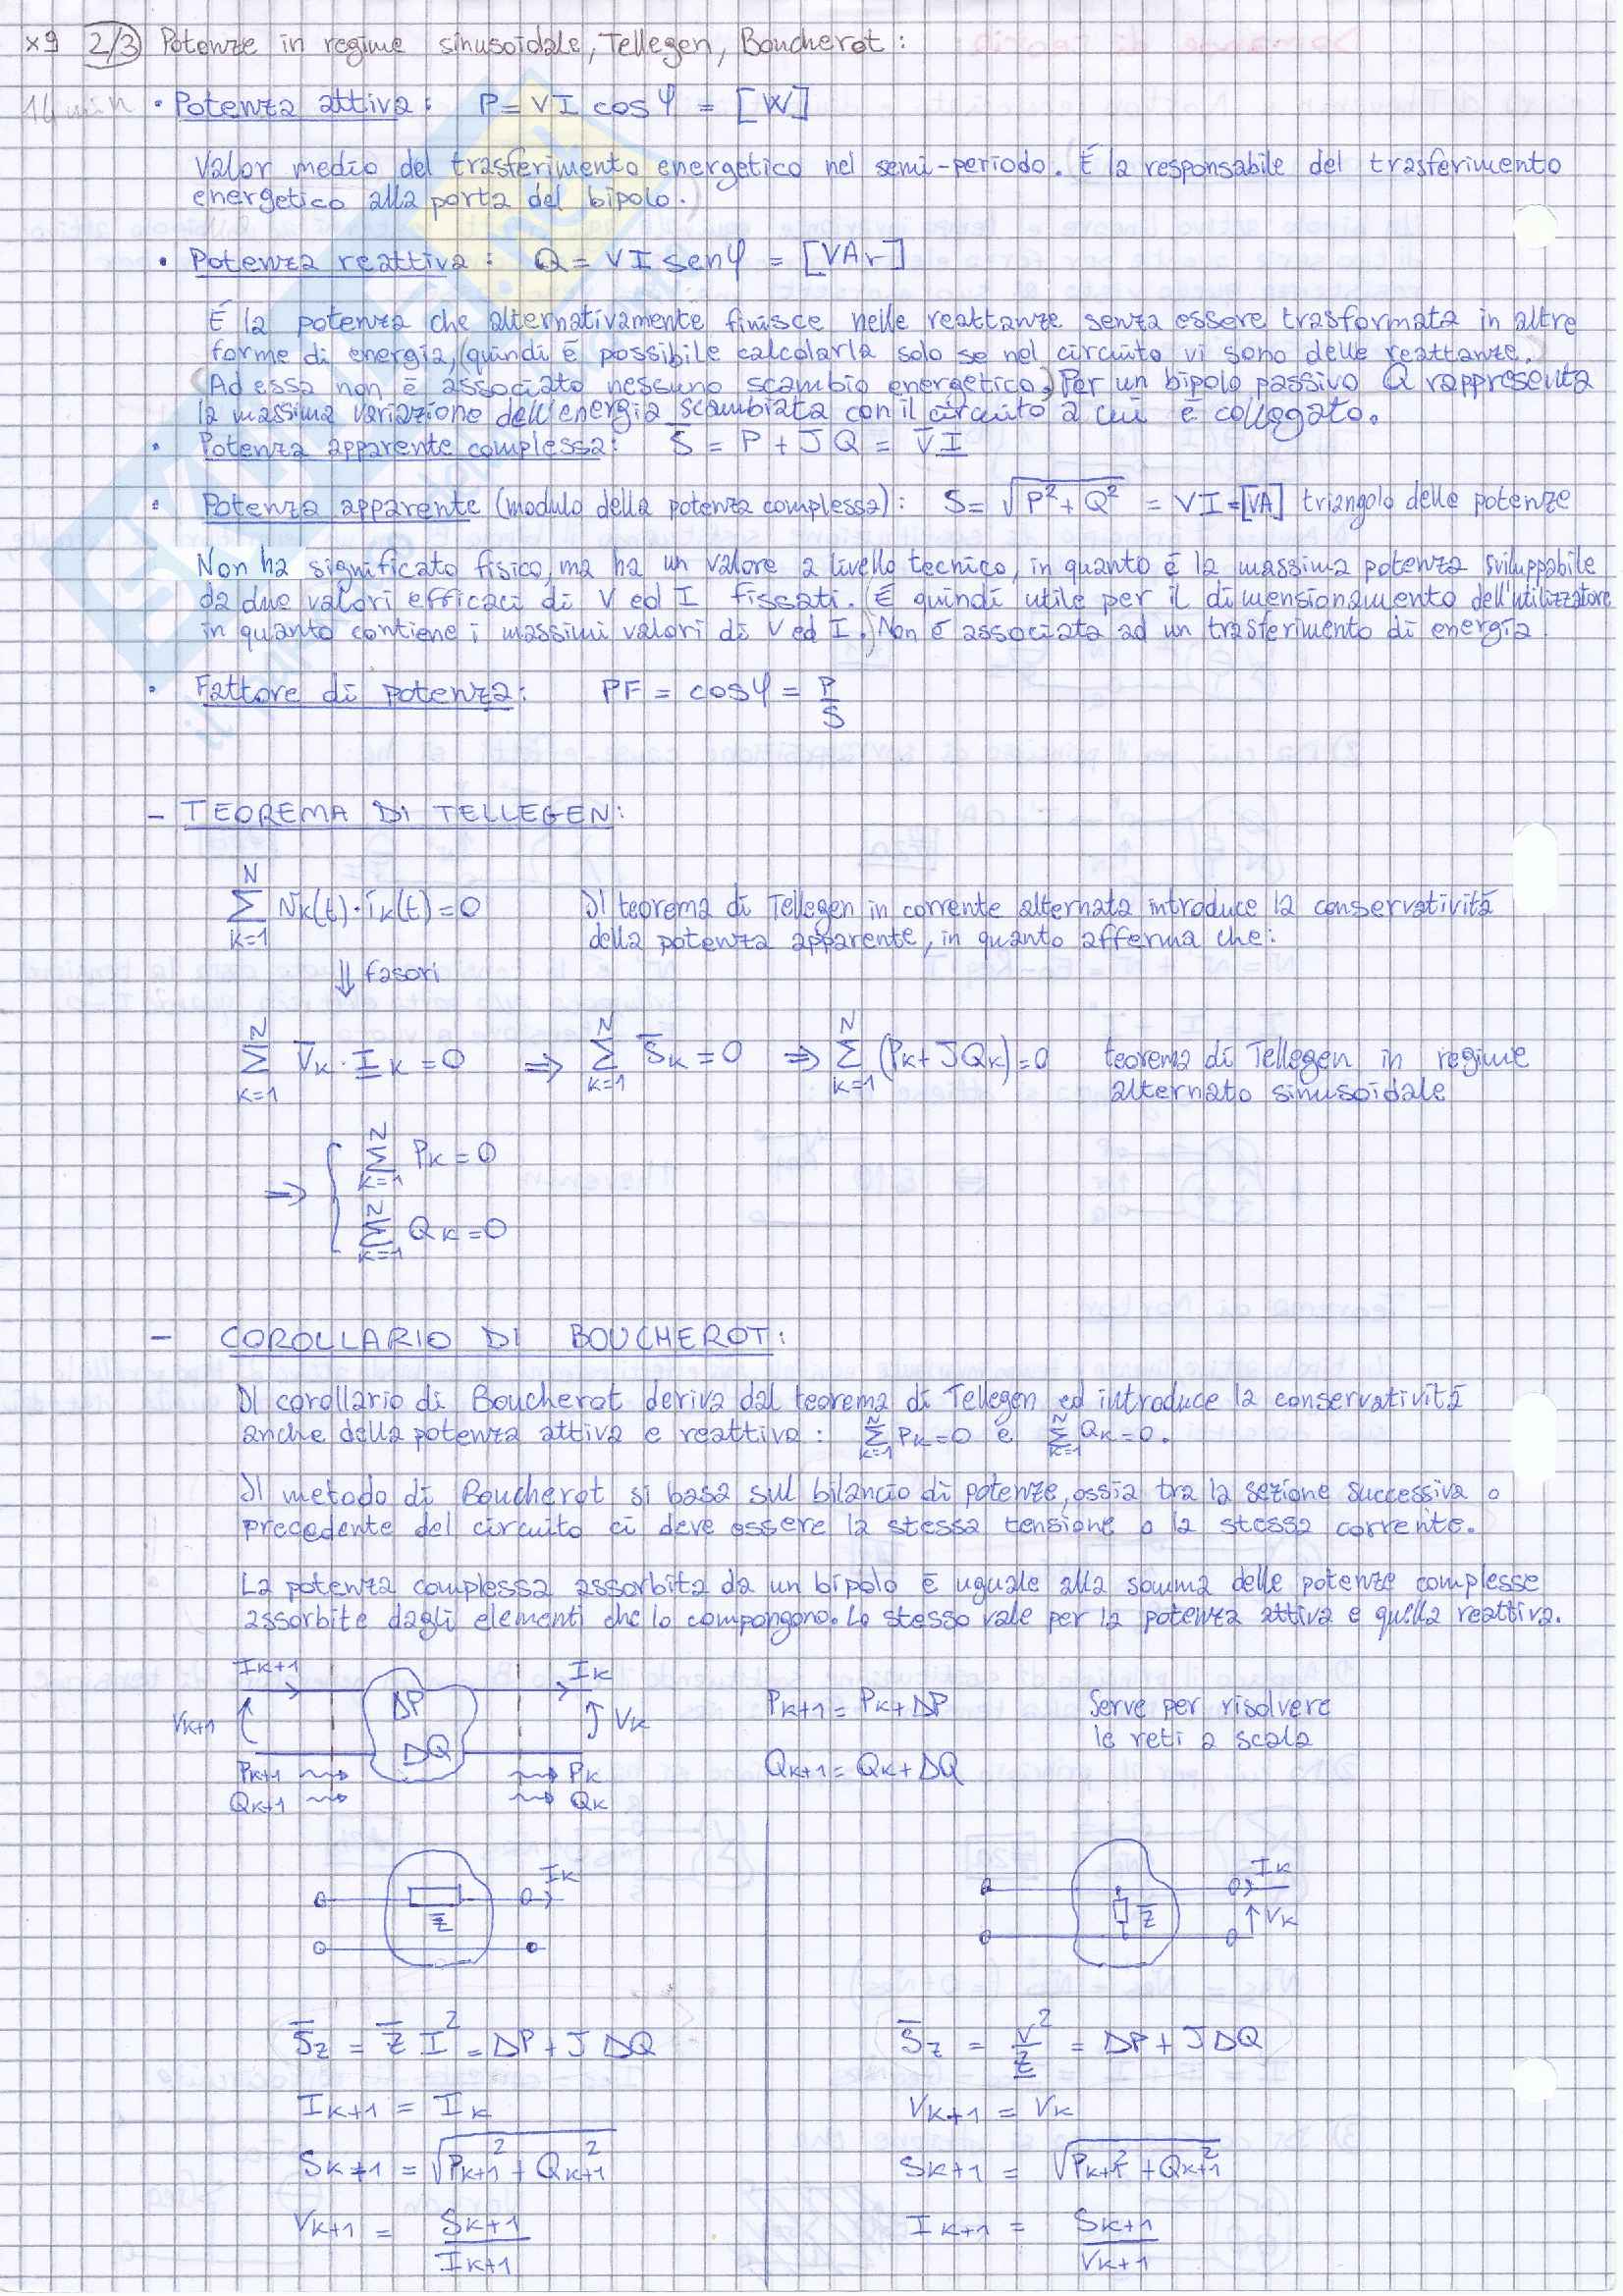 x9 2/3 Potenze in regime sinusoidale, Tellegen, Boucherot:
14 min • Potenza attiva: P = VI cosφ = [W]
Valor medio del trasferimento energetico nel semi-periodo. È la responsabile del trasferimento
energetico alla porta del bipolo.
• Potenza reattiva: Q = VI senφ = [VAr]
È la potenza che alternativamente finisce nelle reattanze senza essere trasformata in altre
forme di energia, (quindi è possibile calcolarla solo se nel circuito vi sono delle reattanze.
Ad essa non è associato nessuno scambio energetico.) Per un bipolo passivo Q rappresenta
la massima variazione dell'energia scambiata con il circuito a cui è collegato.
• Potenza apparente complessa: S̅ = P + JQ = V̅ I̲
• Potenza apparente (modulo della potenza complessa): S = √(P² + Q²) = VI = [VA] triangolo delle potenze
Non ha significato fisico, ma ha un valore a livello tecnico, in quanto è la massima potenza sviluppabile
da due valori efficaci di V ed I fissati. (È quindi utile per il dimensionamento dell'utilizzatore
in quanto contiene i massimi valori di V ed I.) Non è associata ad un trasferimento di energia.
• Fattore di potenza: PF = cosφ = P/S
- TEOREMA DI TELLEGEN:
∑_{k=1}^{N} v_k(t)·i_k(t) = 0 Il teorema di Tellegen in corrente alternata introduce la conservatività
della potenza apparente, in quanto afferma che:
⇓ fasori
∑_{k=1}^{N} V̅_k · I̲_k = 0 ⇒ ∑_{k=1}^{N} S̅_k = 0 ⇒ ∑_{k=1}^{N} (P_k + JQ_k) = 0 teorema di Tellegen in regime
alternato sinusoidale
⇒ { ∑_{k=1}^{N} P_k = 0
∑_{k=1}^{N} Q_k = 0
- COROLLARIO DI BOUCHEROT:
Il corollario di Boucherot deriva dal teorema di Tellegen ed introduce la conservatività
anche della potenza attiva e reattiva: ∑_{k=1}^{N} P_k = 0 e ∑_{k=1}^{N} Q_k = 0.
Il metodo di Boucherot si basa sul bilancio di potenze, ossia tra la sezione successiva o
precedente del circuito ci deve essere la stessa tensione o la stessa corrente.
La potenza complessa assorbita da un bipolo è uguale alla somma delle potenze complesse
assorbite dagli elementi che lo compongono. Lo stesso vale per la potenza attiva e quella reattiva.
I_{k+1} I_k
V_{k+1} DP V_k P_{k+1} = P_k + DP Serve per risolvere
le reti a scala
DQ
P_{k+1} P_k Q_{k+1} = Q_k + DQ
Q_{k+1} Q_k
I_k I_k
Z̅ Z̅ V_k
S̅_z = Z̅ I² = DP + J DQ
I_{k+1} = I_k
S_{k+1} = √(P_{k+1}² + Q_{k+1}²)
V_{k+1} = S_{k+1} / I_{k+1}
S̅_z = V² / Z̲ = DP + J DQ
V_{k+1} = V_k
S_{k+1} = √(P_{k+1}² + Q_{k+1}²)
I_{k+1} = S_{k+1} / V_{k+1}